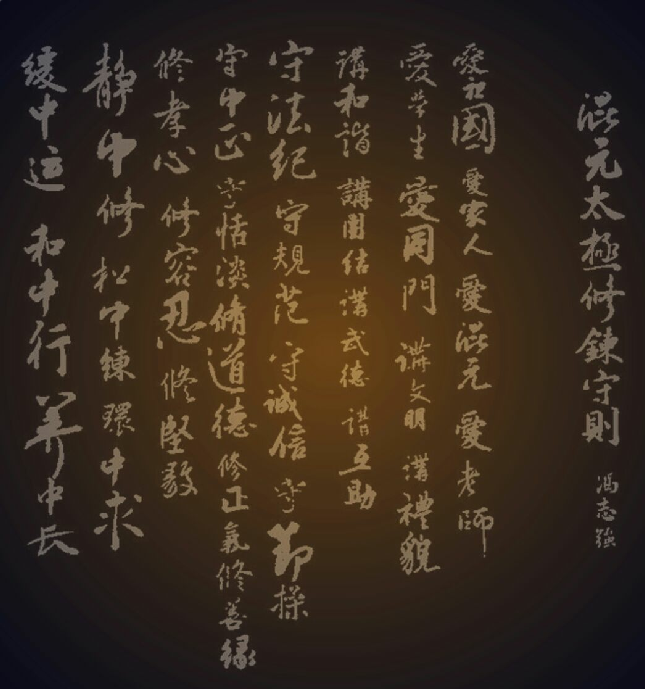 混元太極修鍊守則
馮志強
愛祖國 愛家人 愛混元 愛老師
愛學生 愛同門 講文明 講禮貌
講和諧 講團结 講武德 講互助
守法纪 守規范 守诚信 守節操
守中正 守恬淡 脩道德 修正氣 修善緣
修孝心 修容忍 修堅毅
静中修 松中練 環中求
缓中运 和中行 养中长